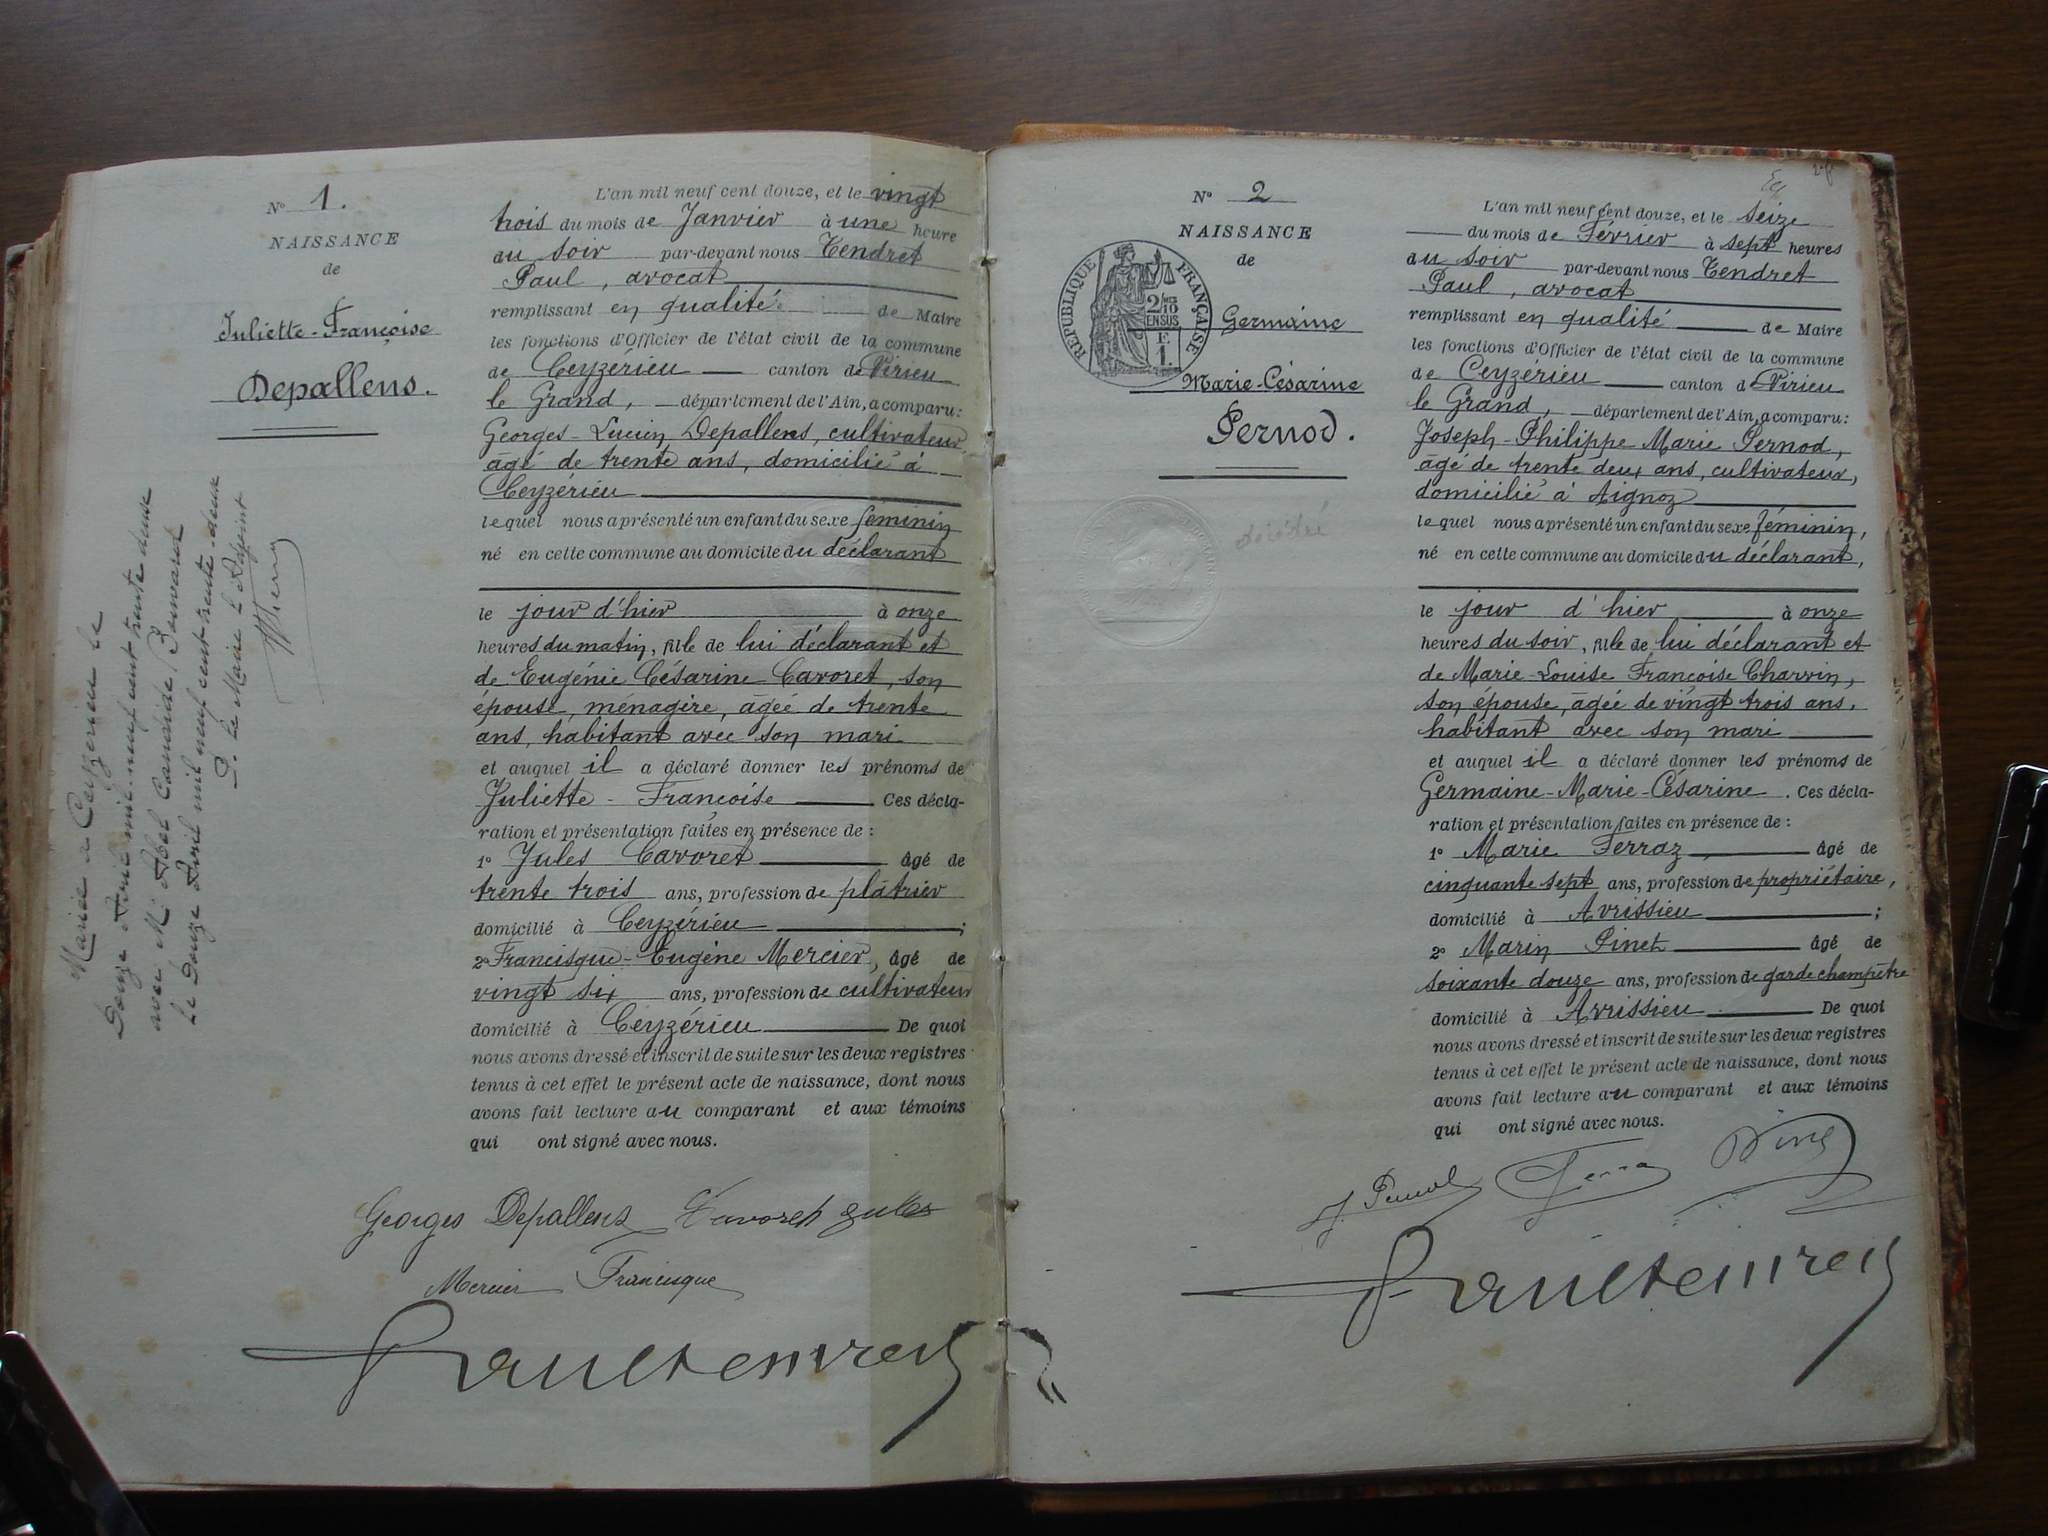 N° 1.
NAISSANCE
de
Juliette-Françoise
Depallens.
Mariée à Ceyzérieu le
douze Avril mil neuf cent trente deux
avec M. Abel Camille
Le douze Avril mil neuf cent trente deux
P. Le Maire L'Adjoint
L'an mil neuf cent douze, et le vingt
trois du mois de Janvier à une heure
au soir par-devant nous Tendret
Paul, avocat
remplissant en qualité de Maire
les fonctions d'Officier de l'état civil de la commune
de Ceyzérieu canton de Virieu
le Grand, département de l'Ain, a comparu:
Georges-Lucien Depallens, cultivateur,
âgé de trente ans, domicilié à
Ceyzérieu
lequel nous a présenté un enfant du sexe féminin
né en cette commune au domicile du déclarant
le jour d'hier à onze
heures du matin, fille de lui déclarant et
de Eugénie Césarine Cavoret, son
épouse, ménagère, âgée de trente
ans, habitant avec son mari
et auquel il a déclaré donner les prénoms de
Juliette-Françoise Ces décla-
ration et présentation faites en présence de :
1° Jules Cavoret âgé de
trente trois ans, profession de plâtrier
domicilié à Ceyzérieu ;
2° Francisque-Eugène Mercier, âgé de
vingt six ans, profession de cultivateur
domicilié à Ceyzérieu De quoi
nous avons dressé et inscrit de suite sur les deux registres
tenus à cet effet le présent acte de naissance, dont nous
avons fait lecture au comparant et aux témoins
qui ont signé avec nous.
Georges Depallens Cavoret Jules
Mercier Francisque
Paul Tendret
N° 2
NAISSANCE
de
RÉPUBLIQUE FRANÇAISE
2/10 EN SUS
F.
1.
Germaine
Marie-Césarine
Pernod.
décédée
L'an mil neuf cent douze, et le seize
du mois de Février à sept heures
au soir par-devant nous Tendret
Paul, avocat
remplissant en qualité de Maire
les fonctions d'Officier de l'état civil de la commune
de Ceyzérieu canton de Virieu
le Grand, département de l'Ain, a comparu:
Joseph-Philippe Marie Pernod,
âgé de trente deux ans, cultivateur,
domicilié à Aignoz
lequel nous a présenté un enfant du sexe féminin,
né en cette commune au domicile du déclarant,
le jour d'hier à onze
heures du soir, fille de lui déclarant et
de Marie-Louise Françoise Charvin,
son épouse, âgée de vingt trois ans,
habitant avec son mari
et auquel il a déclaré donner les prénoms de
Germaine-Marie-Césarine. Ces décla-
ration et présentation faites en présence de :
1° Marie Ferraz âgé de
cinquante sept ans, profession de propriétaire,
domicilié à Avrissieu ;
2° Marin Pinet âgé de
soixante douze ans, profession de garde champêtre
domicilié à Avrissieu De quoi
nous avons dressé et inscrit de suite sur les deux registres
tenus à cet effet le présent acte de naissance, dont nous
avons fait lecture au comparant et aux témoins
qui ont signé avec nous.
J. Pernod Ferra Pinet
Paul Tendret